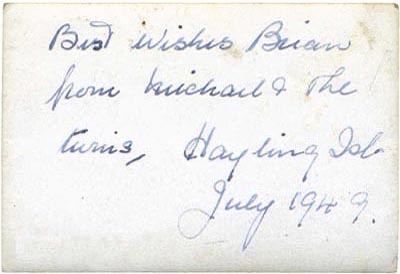 Best Wishes Brian
from Michael & The
twins, Hayling Isl.
July 1949.